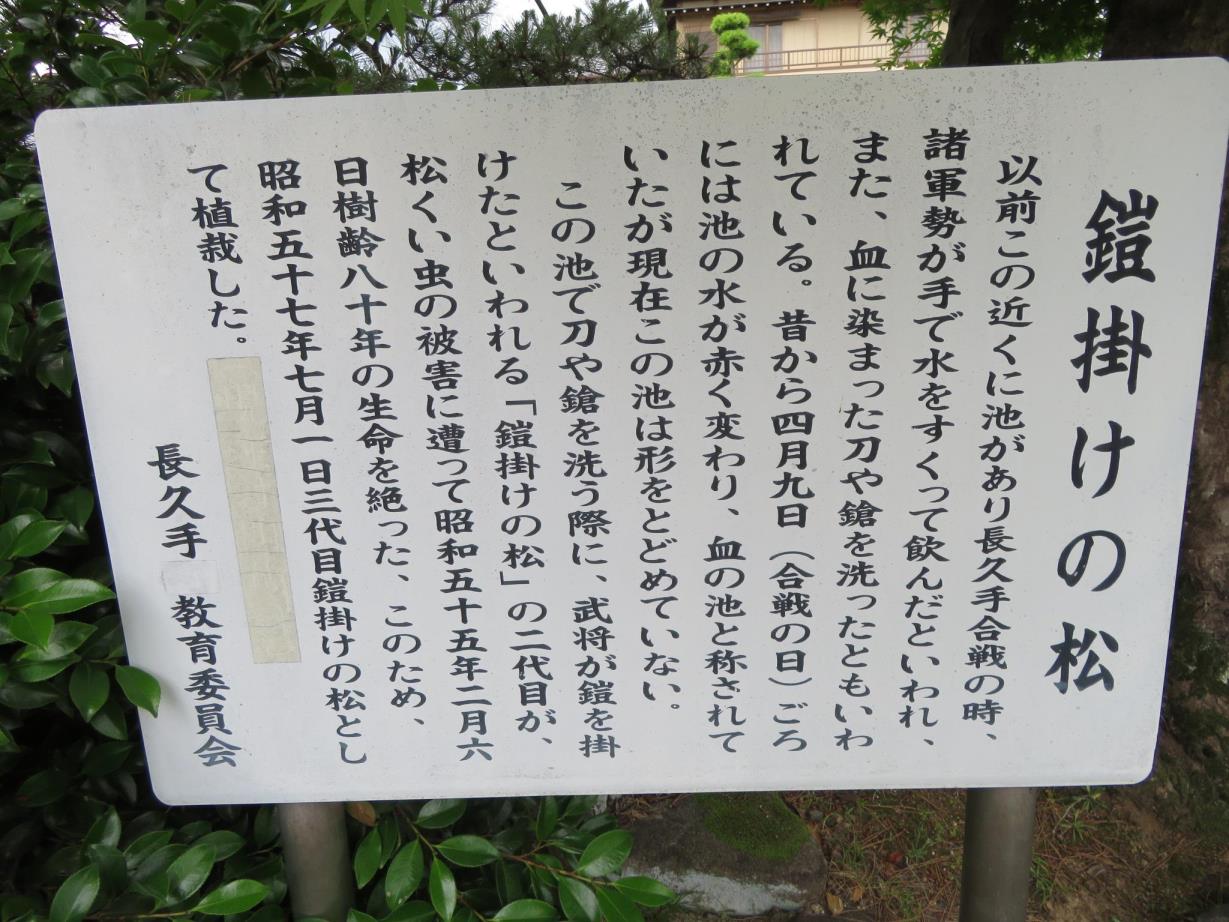 鎧掛けの松
以前この近くに池があり長久手合戦の時、
諸軍勢が手で水をすくって飲んだといわれ、
また、血に染まった刀や鎗を洗ったともいわ
れている。昔から四月九日（合戦の日）ごろ
には池の水が赤く変わり、血の池と称されて
いたが現在この池は形をとどめていない。
この池で刀や鎗を洗う際に、武将が鎧を掛
けたといわれる「鎧掛けの松」の二代目が、
松くい虫の被害に遭って昭和五十五年二月六
日樹齢八十年の生命を絶った、このため、
昭和五十七年七月一日三代目鎧掛けの松とし
て植栽した。
長久手 教育委員会